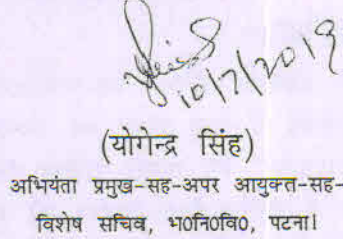 10/7/2019
(योगेन्द्र सिंह)
अभियंता प्रमुख-सह-अपर आयुक्त-सह-
विशेष सचिव, भ०नि०वि०, पटना।